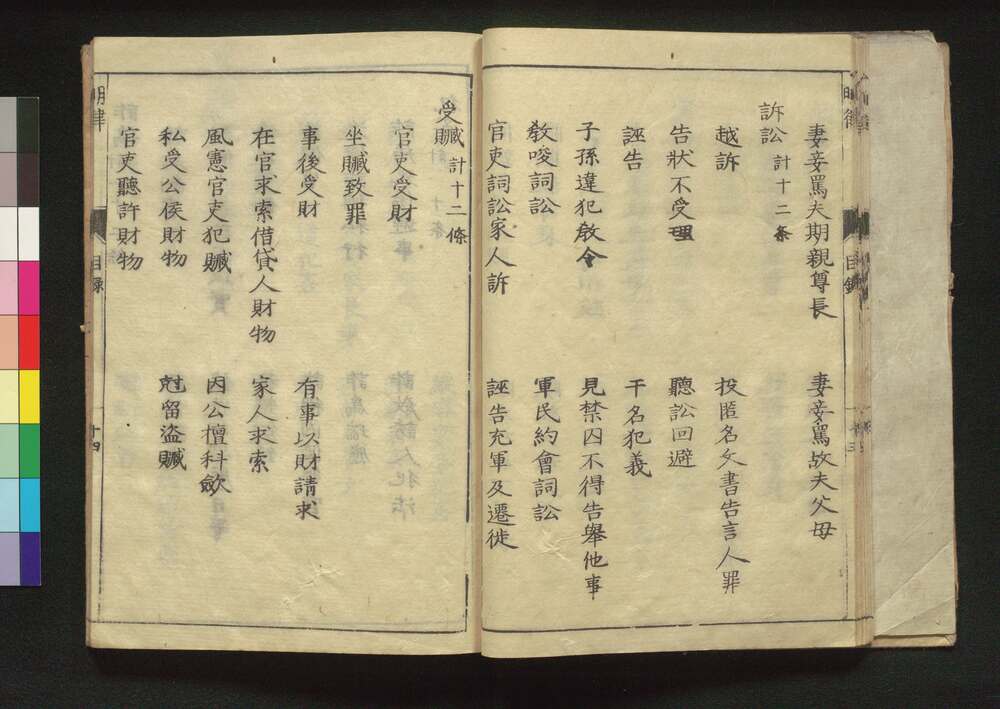 妻妾罵夫期親尊長　妻妾罵故夫父母
訴訟 計十二条
越訴　投匿名文書告言人罪
告狀不受理　聽訟回避
誣告　干名犯義
子孫違犯敎令　見禁囚不得告舉他事
敎唆詞訟　軍民約會詞訟
官吏詞訟家人訴　誣告充軍及遷徙
受贓 計十二條
官吏受財
坐贓致罪
事後受財　有事以財請求
在官求索借貸人財物　家人求索
風憲官吏犯贓　因公擅科斂
私受公侯財物　尅留盜贓
官吏聽許財物
明律
目錄
十四